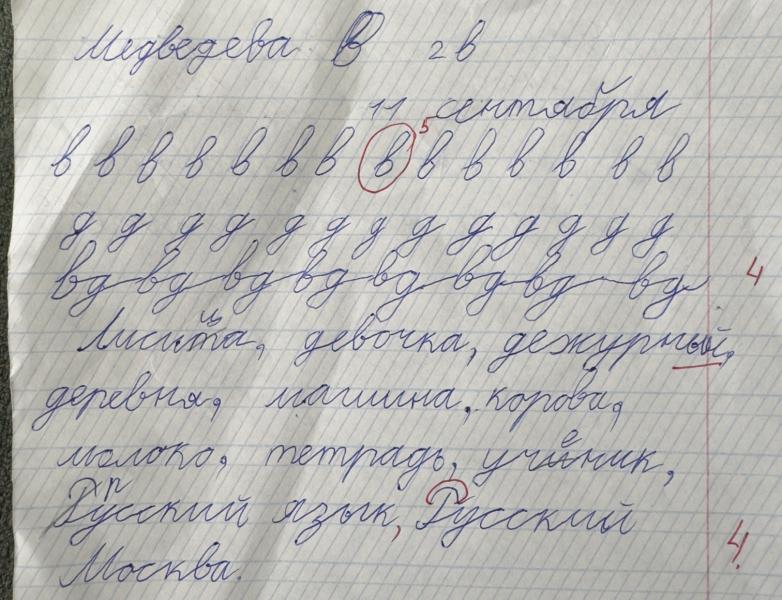 Медведева В 2 в
11 сентября
в в в в в в в в в в в в в в 5
д д д д д д д д д д д д д
вд вд вд вд вд вд вд вд 4
Лисица, девочка, дежурный,
деревня, машина, корова,
молоко, тетрадь, ученик,
Русский язык, Русский
Москва. 4